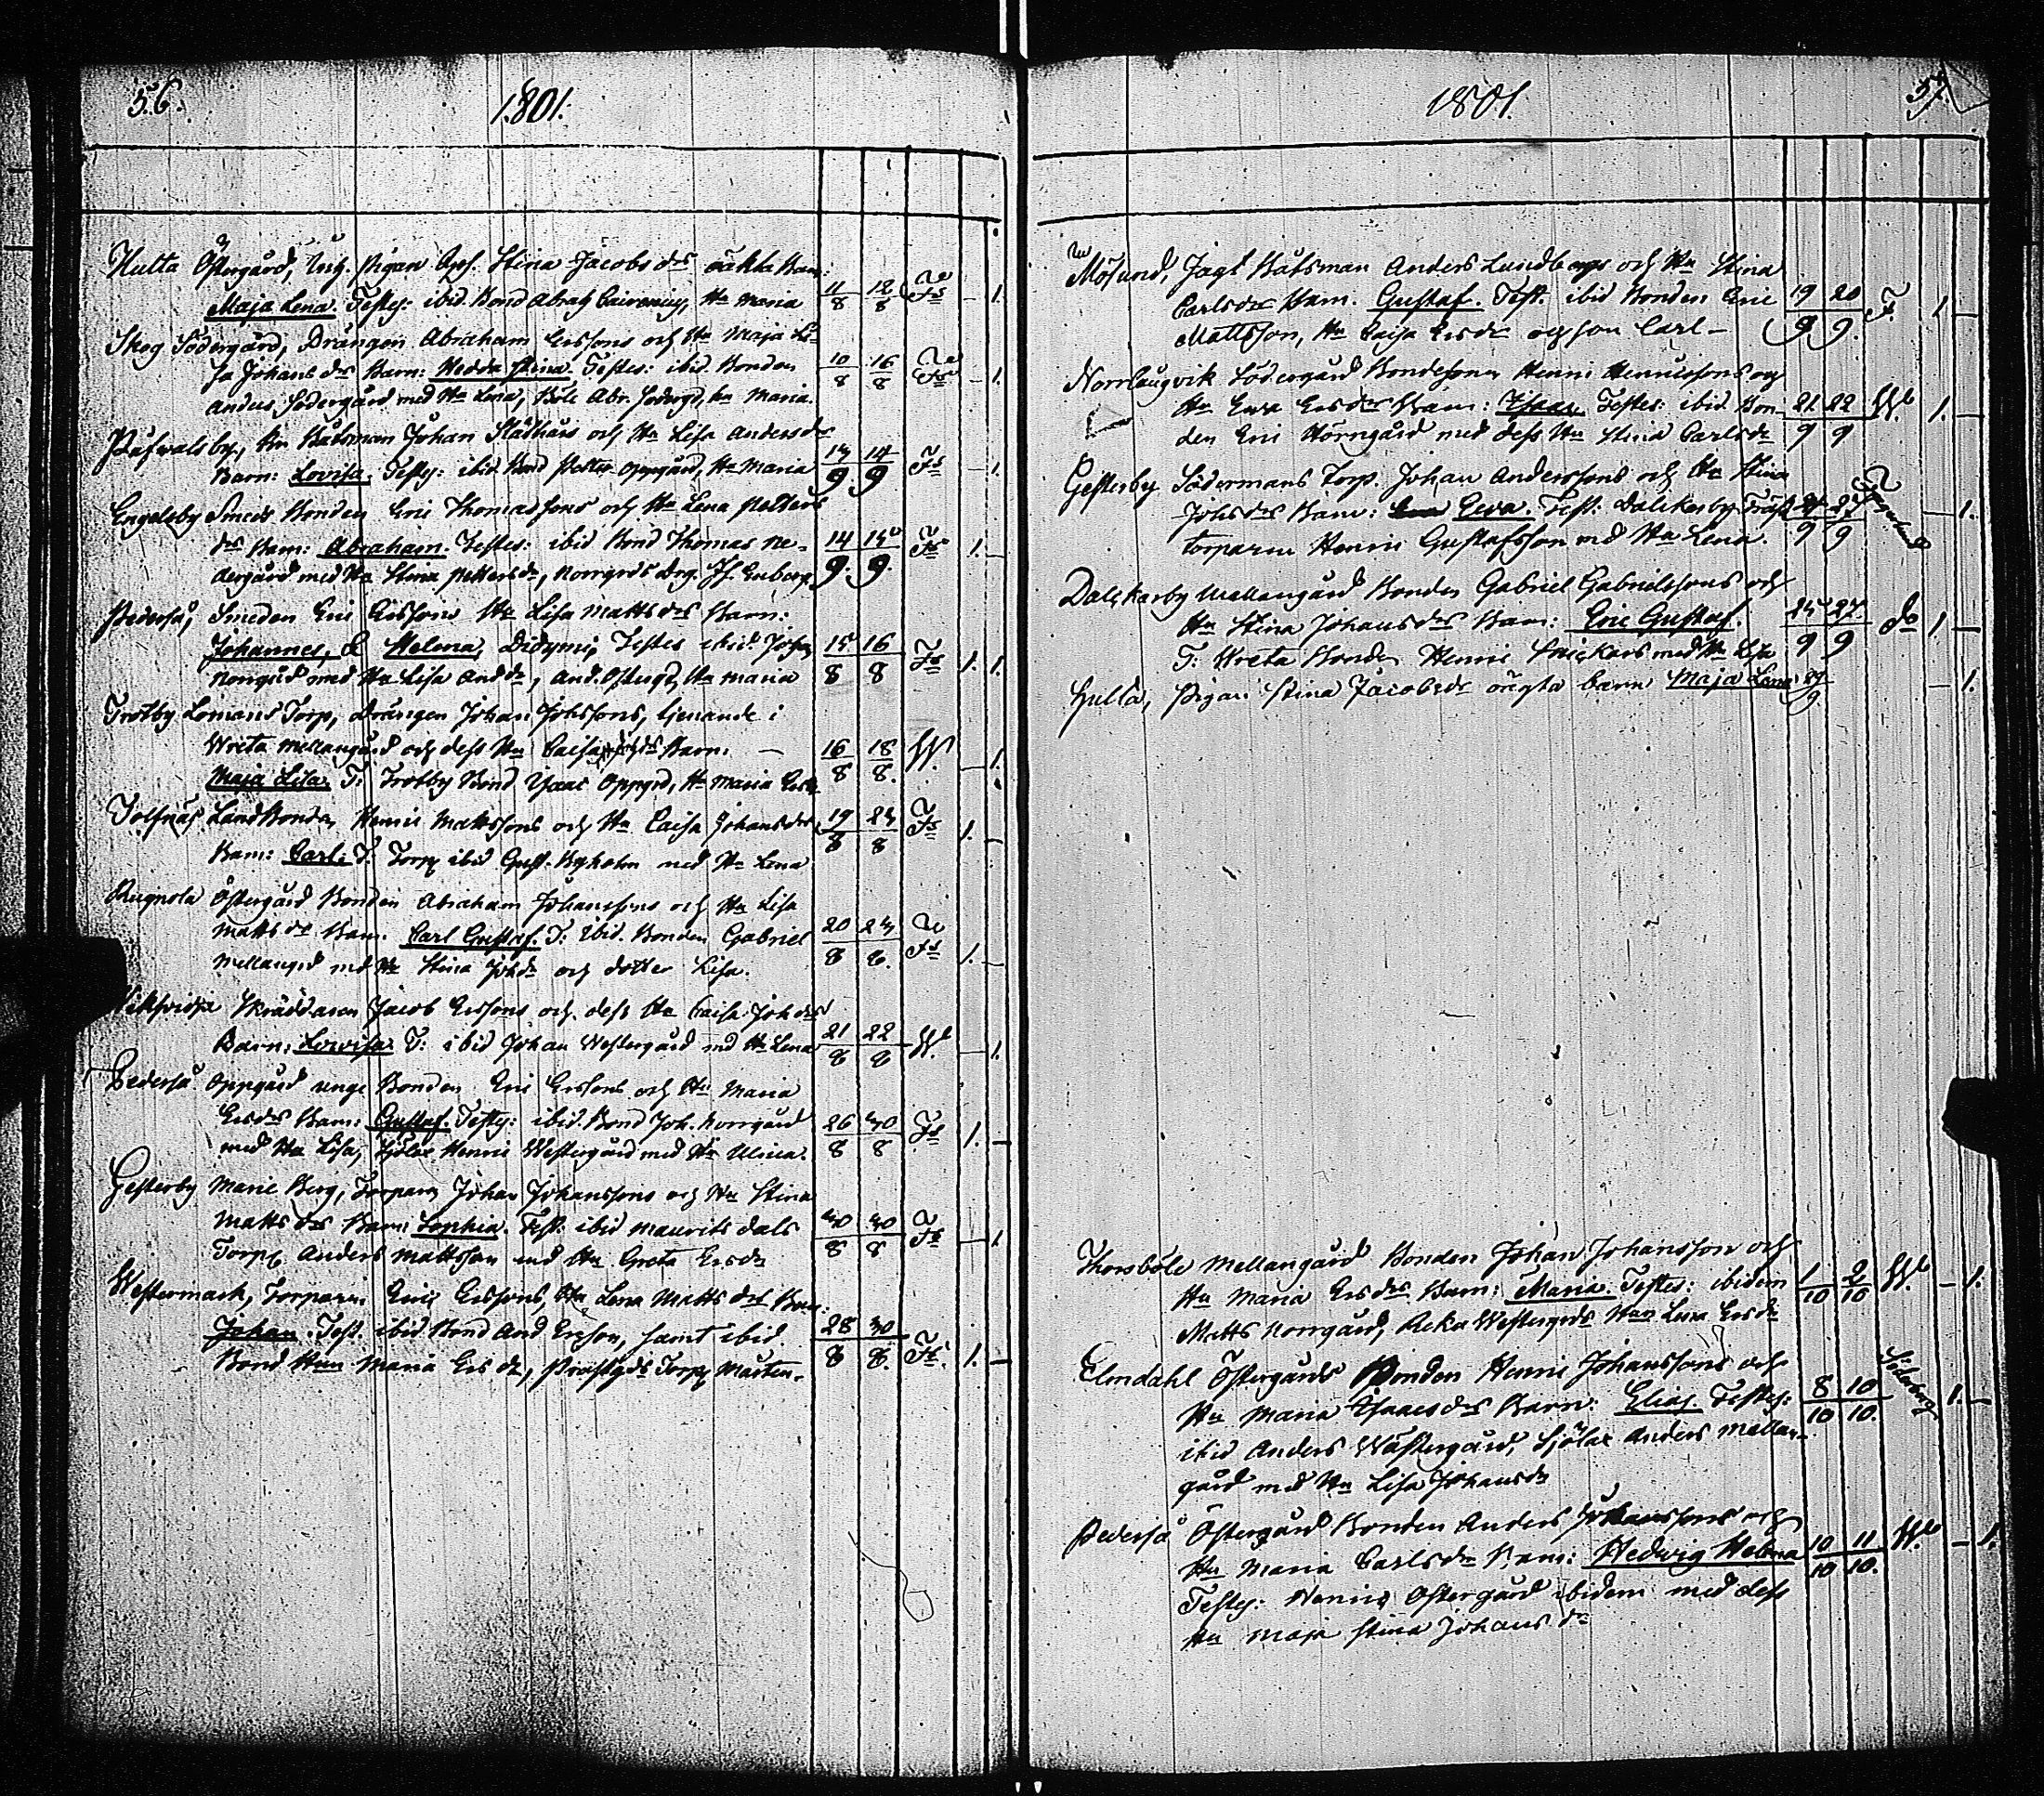 56. 1801.
Hulta Östergård, Inh. Pigan Stina Jacobs drs oäkta Barn: 
Maja Lena. Testes: ibid. Bond Abrah Hu Maria 11/8 12/8 1.
Skog Södergård, Drängen Abraham Erssons och Hu Maja Li-
sa Johans drs Barn: Hedda Stina. Testes: ibid. Bonden 10/8 16/8 1.
Anders Södergård med Hu Lena, Böle Abr. Södergd, hu Maria.
Båtsman Johan Hu Lisa Anders drs
Barn: Lovisa. Testes: ibid Bond Petter Oppgård, Hu Maria 13/9 14/9 1.
Engelsby Smeds Bonden Eric Thomassons och Hu Lena Petters
drs Barn: Abraham. Testes: ibid Bond Thomas Ne- 14/9 15/9 1. –
dergård med Hu Stina Petters dr, Norrgrds Drg. Enberg
Pederså, Smeden Eric Erssons Hu Lisa Matts drs Barn:
Johannes, & Helena, Didymi, Testes ibid. 15/8 16/8 1. 1.
Norrgård med Hu Lisa And. dr, And. Östergd, Hu Maria
Trotby Lomans Torp, Drängen Johan Johssons, tjenande i
Wreta Mellangård och dess Hu Caisa Barn: 16/8 18/8 W. – 1.
Maja Lisa. T: Trotby Bond Isaac Oppgrd, Hu Maria
Tolfnäs Landbonden Henric Mattssons och Hu Caisa Johans drs 19/8 23/8 1. –
Barn: Carl. T: Torp ibid Gust. Byholm med Hu Lena
Rugnola Östergård Bonden Abraham Johanssons och Hu Lisa
Matts drs Barn. Carl Gustaf. T: ibid. Bonden Gabriel 20/8 23/8 1. –
Mellangrd med Hu Stina Joh dr och dotter Lisa.
Skräddaren Jacob Erssons och dess Hu Caisa Joh drs
Barn: Lovisa T: ibid Johan Westergård med Hu Lena 21/8 22/8 W. – 1.
Pederså Oppgård unge Bonden Eric Erssons och Hu Maria
Ers drs Barn: Gustaf. Testes: ibid. Bond Joh. Norrgård 26/8 30/8 1. –
med Hu Lisa, Sjölax Henric Westergård med Hu Ulrica.
Gesterby Marie Berg, Torparen Johan Johanssons och Hu Stina
Matts drs Barn: Sophia. Test: ibid Maurits dals 30/8 30/8 – 1
Torp. Anders Mattsson med Hu Greta Ers dr
Westermark, Torparen Eric Erssons, Hu Lena Matts drs Barn:
Johan. Test. ibid Bond And Ersson, samt ibid 28/8 30/8 1. –
Bond Hun Maria Ers dr, Prostgds Torp Mårten.
1801. 57.
Mösund, Jagt Båtsman Anders Lundbergs och Hu Stina
Carls drs Barn. Gustaf. Test. ibid Bonden Eric 19/9 20/9 F. 1 –
Mattsson, Hu Caisa Ers dr och son Carl –
Norrlångvik Södergård Bondesonen Henric Henricssons och
Hu Ewa Ers drs Barn: Isaac. Testes: ibid. Bon- 21/9 22/9 W. 1. –
den Eric Hörngård med dess Hu Stina Carls dr
Gesterby Södermans Torp. Johan Anderssons och Hu Stina
Johs drs Barn: Ewa. Test: Dalckarby Träsk 27/9 – 1.
torparen Henric Gustafsson md Hu Lena.
Dalckarby Mellangård Bonden Gabriel Gabrielssons och
Hu Stina Johans drs Barn: Eric Gustaf. 25/9 27/9 do 1 –
T: Wreta Bonden Henric med Hu Lisa
Hulta, Pigan Stina Jacobs dr oägta barn Maja Lena – 1.
Thorsböle Mellangård Bonden Johan Johansson och
Hu Maria Ers drs Barn: Maria. Testes: ibidem 1/10 2/10 W. – 1.
Matts Norrgård, Reka Westergrds Hun Lena Ers dr
Elmdahl Östergårds Bonden Henric Johanssons och
Hu Maria Isaacs drs Barn: Elias. Testes: 8/10 10/10. Söderberg 1. –
ibid Anders Wästergård, Sjölax Anders Mellan-
gård med Hu Lisa Johans dr
Pederså Östergård Bonden Anders Johanssons och
Hu Maria Carls drs Barn: Hedwig Helena 10/10 11/10. W. – 1.
Testes: Henric Östergård ibidem med dess
Hu Maja Stina Johans dr